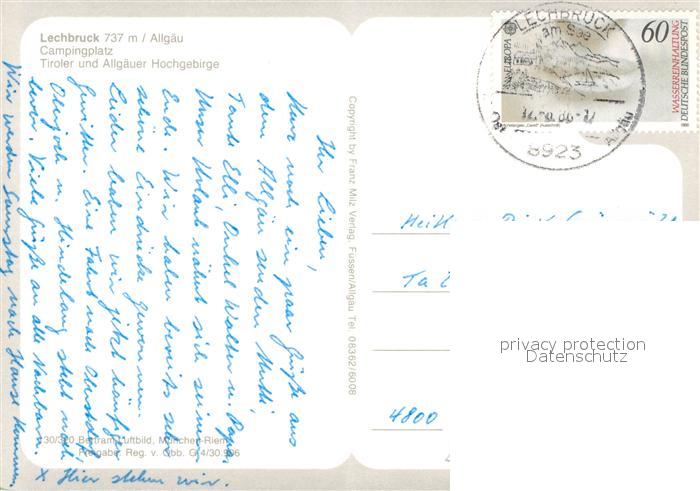 Lechbruck 737 m / Allgäu
Campingplatz
Tiroler und Allgäuer Hochgebirge
Ihr Lieben,
Nur noch ein paar Grüße aus
dem Allgäu senden Mutti,
Tante Elli, Onkel Walter u. Papa.
Unser Urlaub nähert sich seinem
Ende. Wir haben bereits sehr
schöne Eindrücke gewonnen.
Leider haben wir jetzt häufig
Gewitter. Eine Fahrt nach Oberstdorf,
Oberjoch u. Hindelang steht noch
bevor. Viele Grüße an alle Nachbarn.
Wir werden Samstag nach Hause kommen.
x Hier stehen wir.
30/320 Bertram-Luftbild, München-Riem
Freigabe: Reg. v. Obb. G 4/30.906
Copyright by Franz Milz Verlag, Füssen/Allgäu Tel. 08362/6008
LECHBRUCK
am See
Allgäu
8923
EUROPA
60
WASSERREINHALTUNG
DEUTSCHE BUNDESPOST
4800
privacy protection
Datenschutz